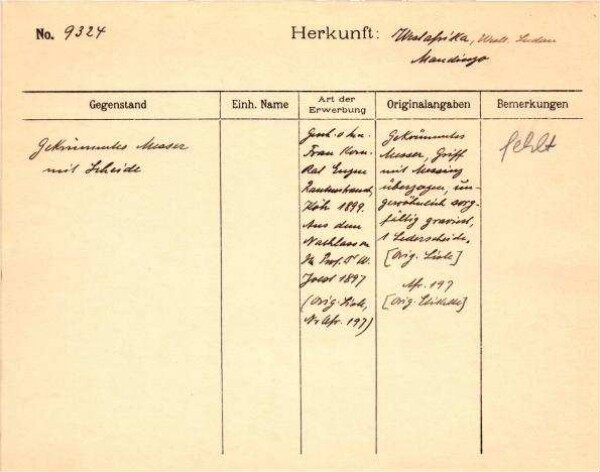 No. 9324
Herkunft: Westafrika, Westl. Sudan
Mandingo
Gegenstand
Einh. Name
Art der Erwerbung
Originalangaben
Bemerkungen
Gekrümmtes Messer
mit Scheide
Gesch. v.
Frau Kom.
Rat Eugen
Rautenstrauch,
Köln 1899.
Aus dem
Nachlass v.
Prof. Dr W.
Joest 1897
(Orig. Liste,
Nr Afr. 197)
Gekrümmtes
Messer, Griff
mit Messing
überzogen, un-
gewöhnlich sorg-
fältig graviert,
1 Lederscheide.
[Orig. Liste]
Afr. 197
[Orig. Etikette]
fehlt